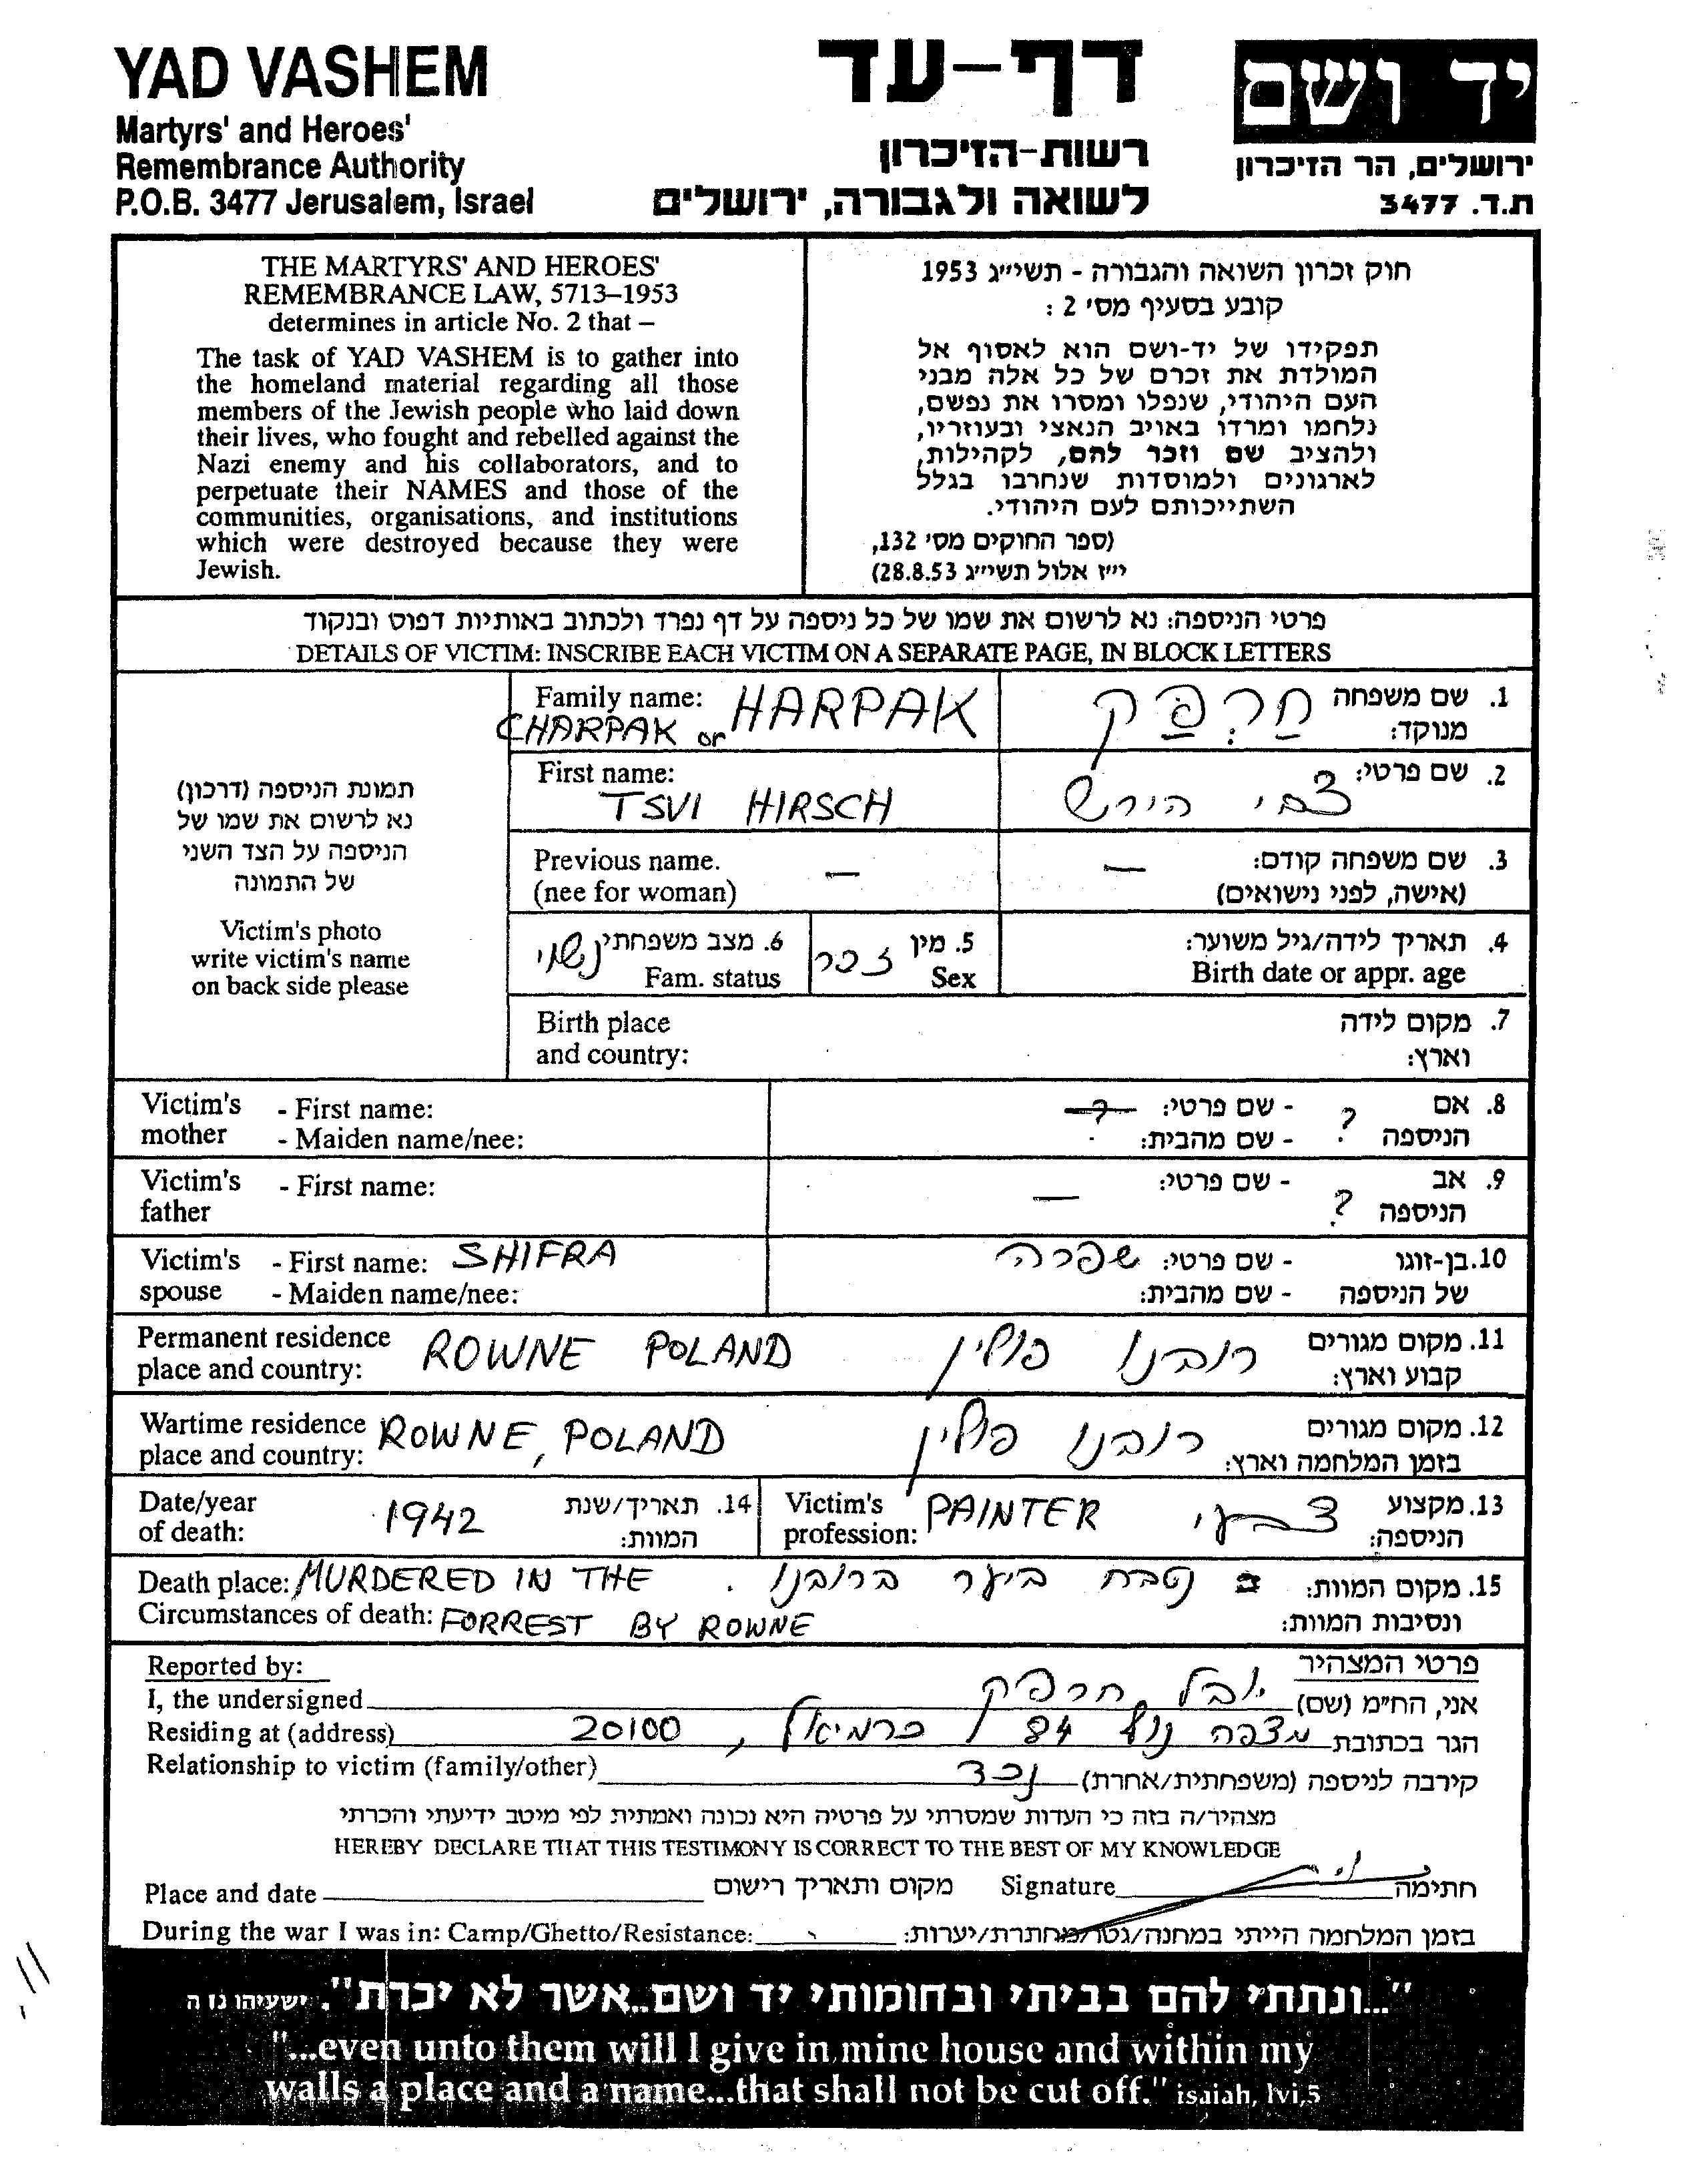 YAD VASHEM
Martyrs' and Heroes'
Remembrance Authority
P.O.B. 3477 Jerusalem, Israel
דף-עד
רשות-הזיכרון
לשואה ולגבורה, ירושלים
יד ושם
ירושלים, הר הזיכרון
ת.ד. 3477
THE MARTYRS' AND HEROES'
REMEMBRANCE LAW, 5713–1953
determines in article No. 2 that –
The task of YAD VASHEM is to gather into
the homeland material regarding all those
members of the Jewish people who laid down
their lives, who fought and rebelled against the
Nazi enemy and his collaborators, and to
perpetuate their NAMES and those of the
communities, organisations, and institutions
which were destroyed because they were
Jewish.
חוק זכרון השואה והגבורה - תשי״ג 1953
קובע בסעיף מס׳ 2 :
תפקידו של יד-ושם הוא לאסוף אל
המולדת את זכרם של כל אלה מבני
העם היהודי, שנפלו ומסרו את נפשם,
נלחמו ומרדו באויב הנאצי ובעוזריו,
ולהציב שם וזכר להם, לקהילות,
לארגונים ולמוסדות שנחרבו בגלל
השתייכותם לעם היהודי.
(ספר החוקים מס׳ 132,
י״ז אלול תשי״ג 28.8.53)
פרטי הניספה: נא לרשום את שמו של כל ניספה על דף נפרד ולכתוב באותיות דפוס ובנקוד
DETAILS OF VICTIM: INSCRIBE EACH VICTIM ON A SEPARATE PAGE, IN BLOCK LETTERS
תמונת הניספה (דרכון)
נא לרשום את שמו של
הניספה על הצד השני
של התמונה
Victim's photo
write victim's name
on back side please
Family name: HARPAK
CHARPAK or
1. שם משפחה חַרְפַּק
מנוקד:
First name:
TSVI HIRSCH
2. שם פרטי: צבי, הירש
Previous name. —
(nee for woman)
3. שם משפחה קודם: —
(אישה, לפני נישואים)
6. מצב משפחתי נשוי
Fam. status
5. מין זכר
Sex
4. תאריך לידה/גיל משוער:
Birth date or appr. age
Birth place
and country:
7. מקום לידה
וארץ:
Victim's - First name:
mother - Maiden name/nee:
8. אם ? - שם פרטי: ?
הניספה - שם מהבית:
Victim's - First name:
father
9. אב ? - שם פרטי: —
הניספה
Victim's - First name: SHIFRA
spouse - Maiden name/nee:
10. בן-זוגו - שם פרטי: שפרה
של הניספה - שם מהבית:
Permanent residence ROWNE POLAND
place and country:
11. מקום מגורים רובנו פולין
קבוע וארץ:
Wartime residence ROWNE, POLAND
place and country:
12. מקום מגורים רובנו פולין
בזמן המלחמה וארץ:
Date/year 1942
of death:
14. תאריך/שנת
המוות:
Victim's PAINTER
profession:
13. מקצוע צבעי
הניספה:
Death place: MURDERED IN THE
Circumstances of death: FORREST BY ROWNE
15. מקום המוות: נטבח ביער ברובנו.
ונסיבות המוות:
Reported by:
פרטי המצהיר
I, the undersigned
אני, הח״מ (שם) יובל חרפק
Residing at (address)
הגר בכתובת מצפה נוף 84 כרמיאל, 20100
Relationship to victim (family/other)
קירבה לניספה (משפחתית/אחרת) נכד
מצהיר/ה בזה כי העדות שמסרתי על פרטיה היא נכונה ואמתית לפי מיטב ידיעתי והכרתי
HEREBY DECLARE THAT THIS TESTIMONY IS CORRECT TO THE BEST OF MY KNOWLEDGE
Place and date מקום ותאריך רישום Signature חתימה
During the war I was in: Camp/Ghetto/Resistance: בזמן המלחמה הייתי במחנה/גטו/מחתרת/יערות:
"...ונתתי להם בביתי ובחומותי יד ושם..אשר לא יכרת". ישעיהו נו ה
"...even unto them will I give in mine house and within my
walls a place and a name...that shall not be cut off." isaiah, lvi,5